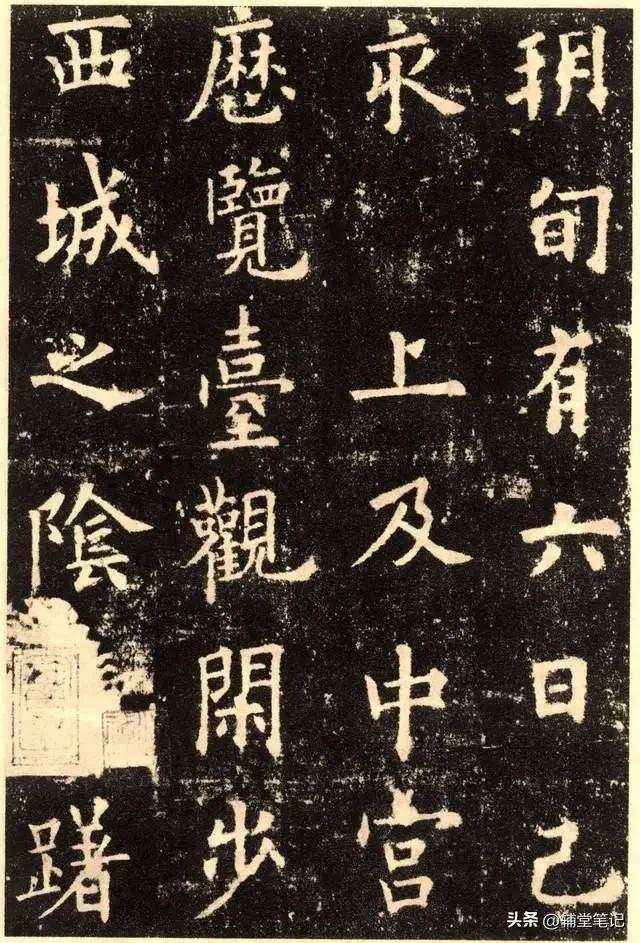 玥旬有六日己
亥上及中宫
歷覽臺觀閑步
西城之陰
躇
头条 @辅堂笔记